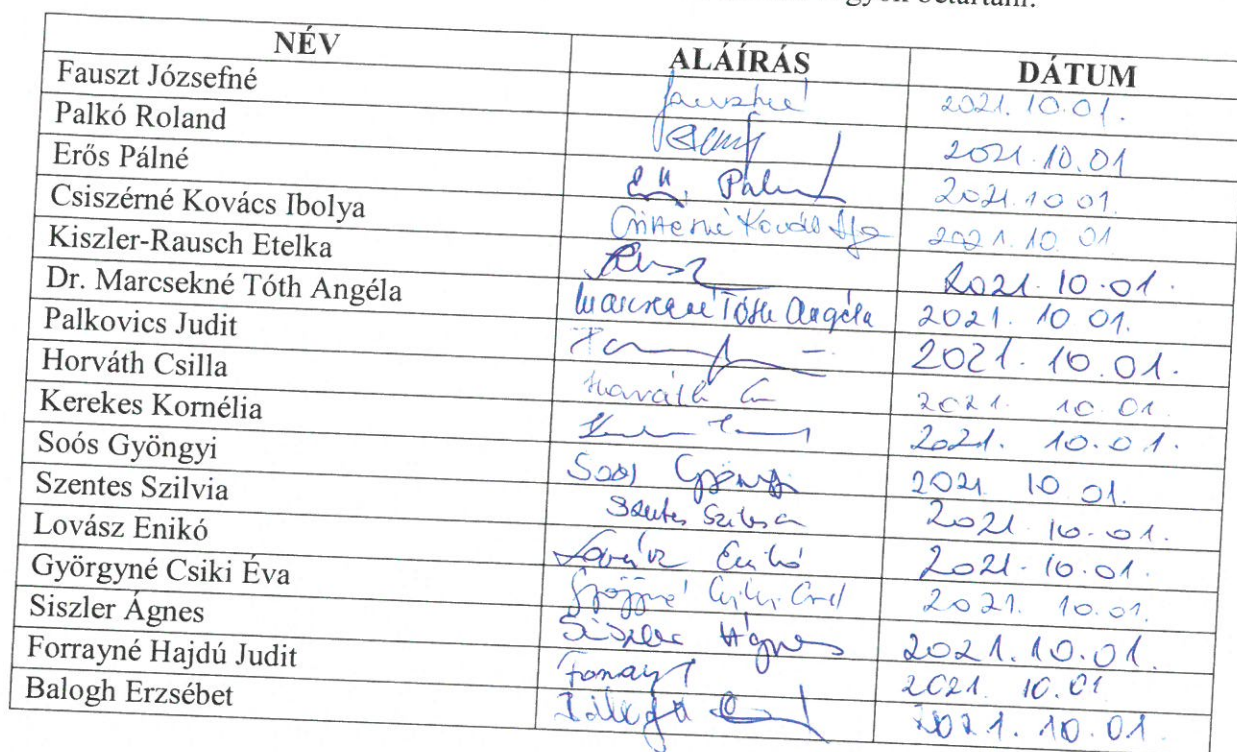 betartani.
NÉV ALÁÍRÁS DÁTUM
Fauszt Józsefné Fausztné 2021. 10.01.
Palkó Roland 2021.10.01
Erős Pálné 2021.10 01.
Csiszérné Kovács Ibolya Csiszérné Kovács 2021.10.01
Kiszler-Rausch Etelka 2021.10.01.
Dr. Marcsekné Tóth Angéla Marcsekné Tóth Angéla 2021. 10 01.
Palkovics Judit 2021. 10.01.
Horváth Csilla Horváth 2021. 10.01.
Kerekes Kornélia 2021. 10.01.
Soós Gyöngyi Soós Gyöngyi 2021. 10.01.
Szentes Szilvia Szentes Szilvia 2021 10.01.
Lovász Enikó Lovász Enikó 2021.10.01.
Györgyné Csiki Éva Györgyné Csiki Éva 2021. 10.01.
Siszler Ágnes Siszler Ágnes 2021.10.01.
Forrayné Hajdú Judit 2021. 10.01
Balogh Erzsébet Balogh 2021.10.01.